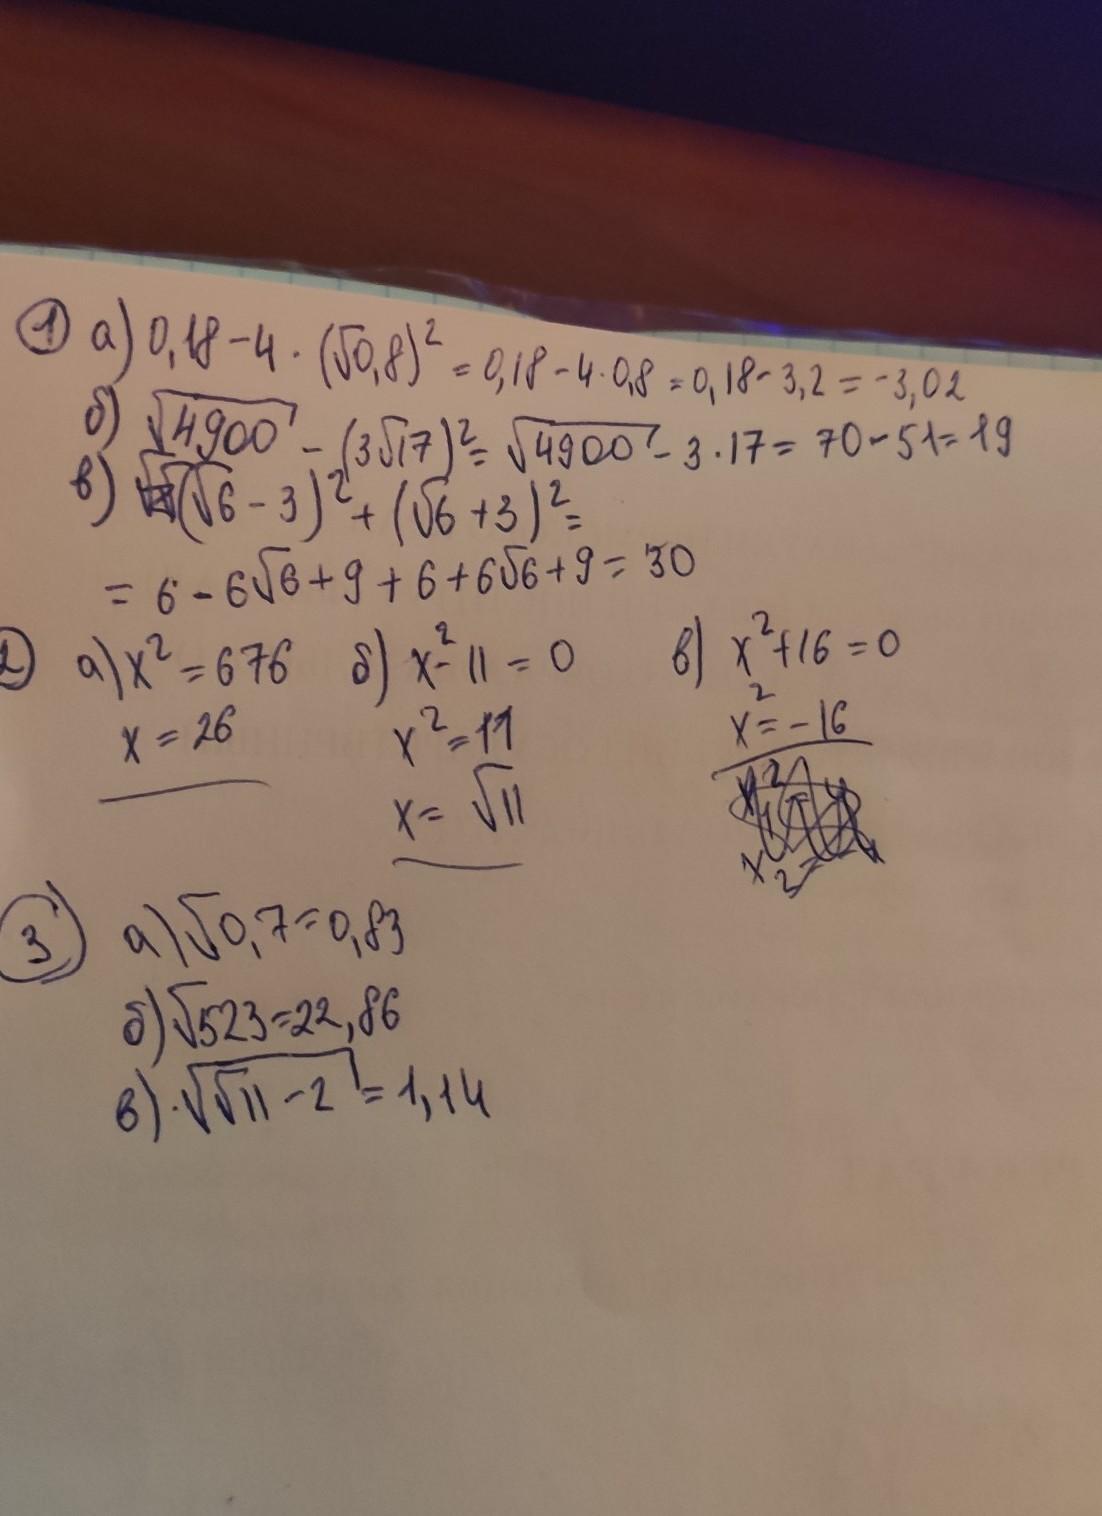 1 а) 0,18-4·(√0,8)² = 0,18-4·0,8 = 0,18-3,2 = -3,02
б) √4900 - (3√17)² = √4900 - 3·17 = 70-51 = 19
в) (√6-3)² + (√6+3)² =
= 6-6√6+9+6+6√6+9 = 30
2 а) x² = 676 б) x²-11 = 0 в) x²+16 = 0
x = 26 x² = 11 x² = -16
x = √11
3 а) √0,7 = 0,83
б) √523 = 22,86
в) √(√11-2) = 1,14